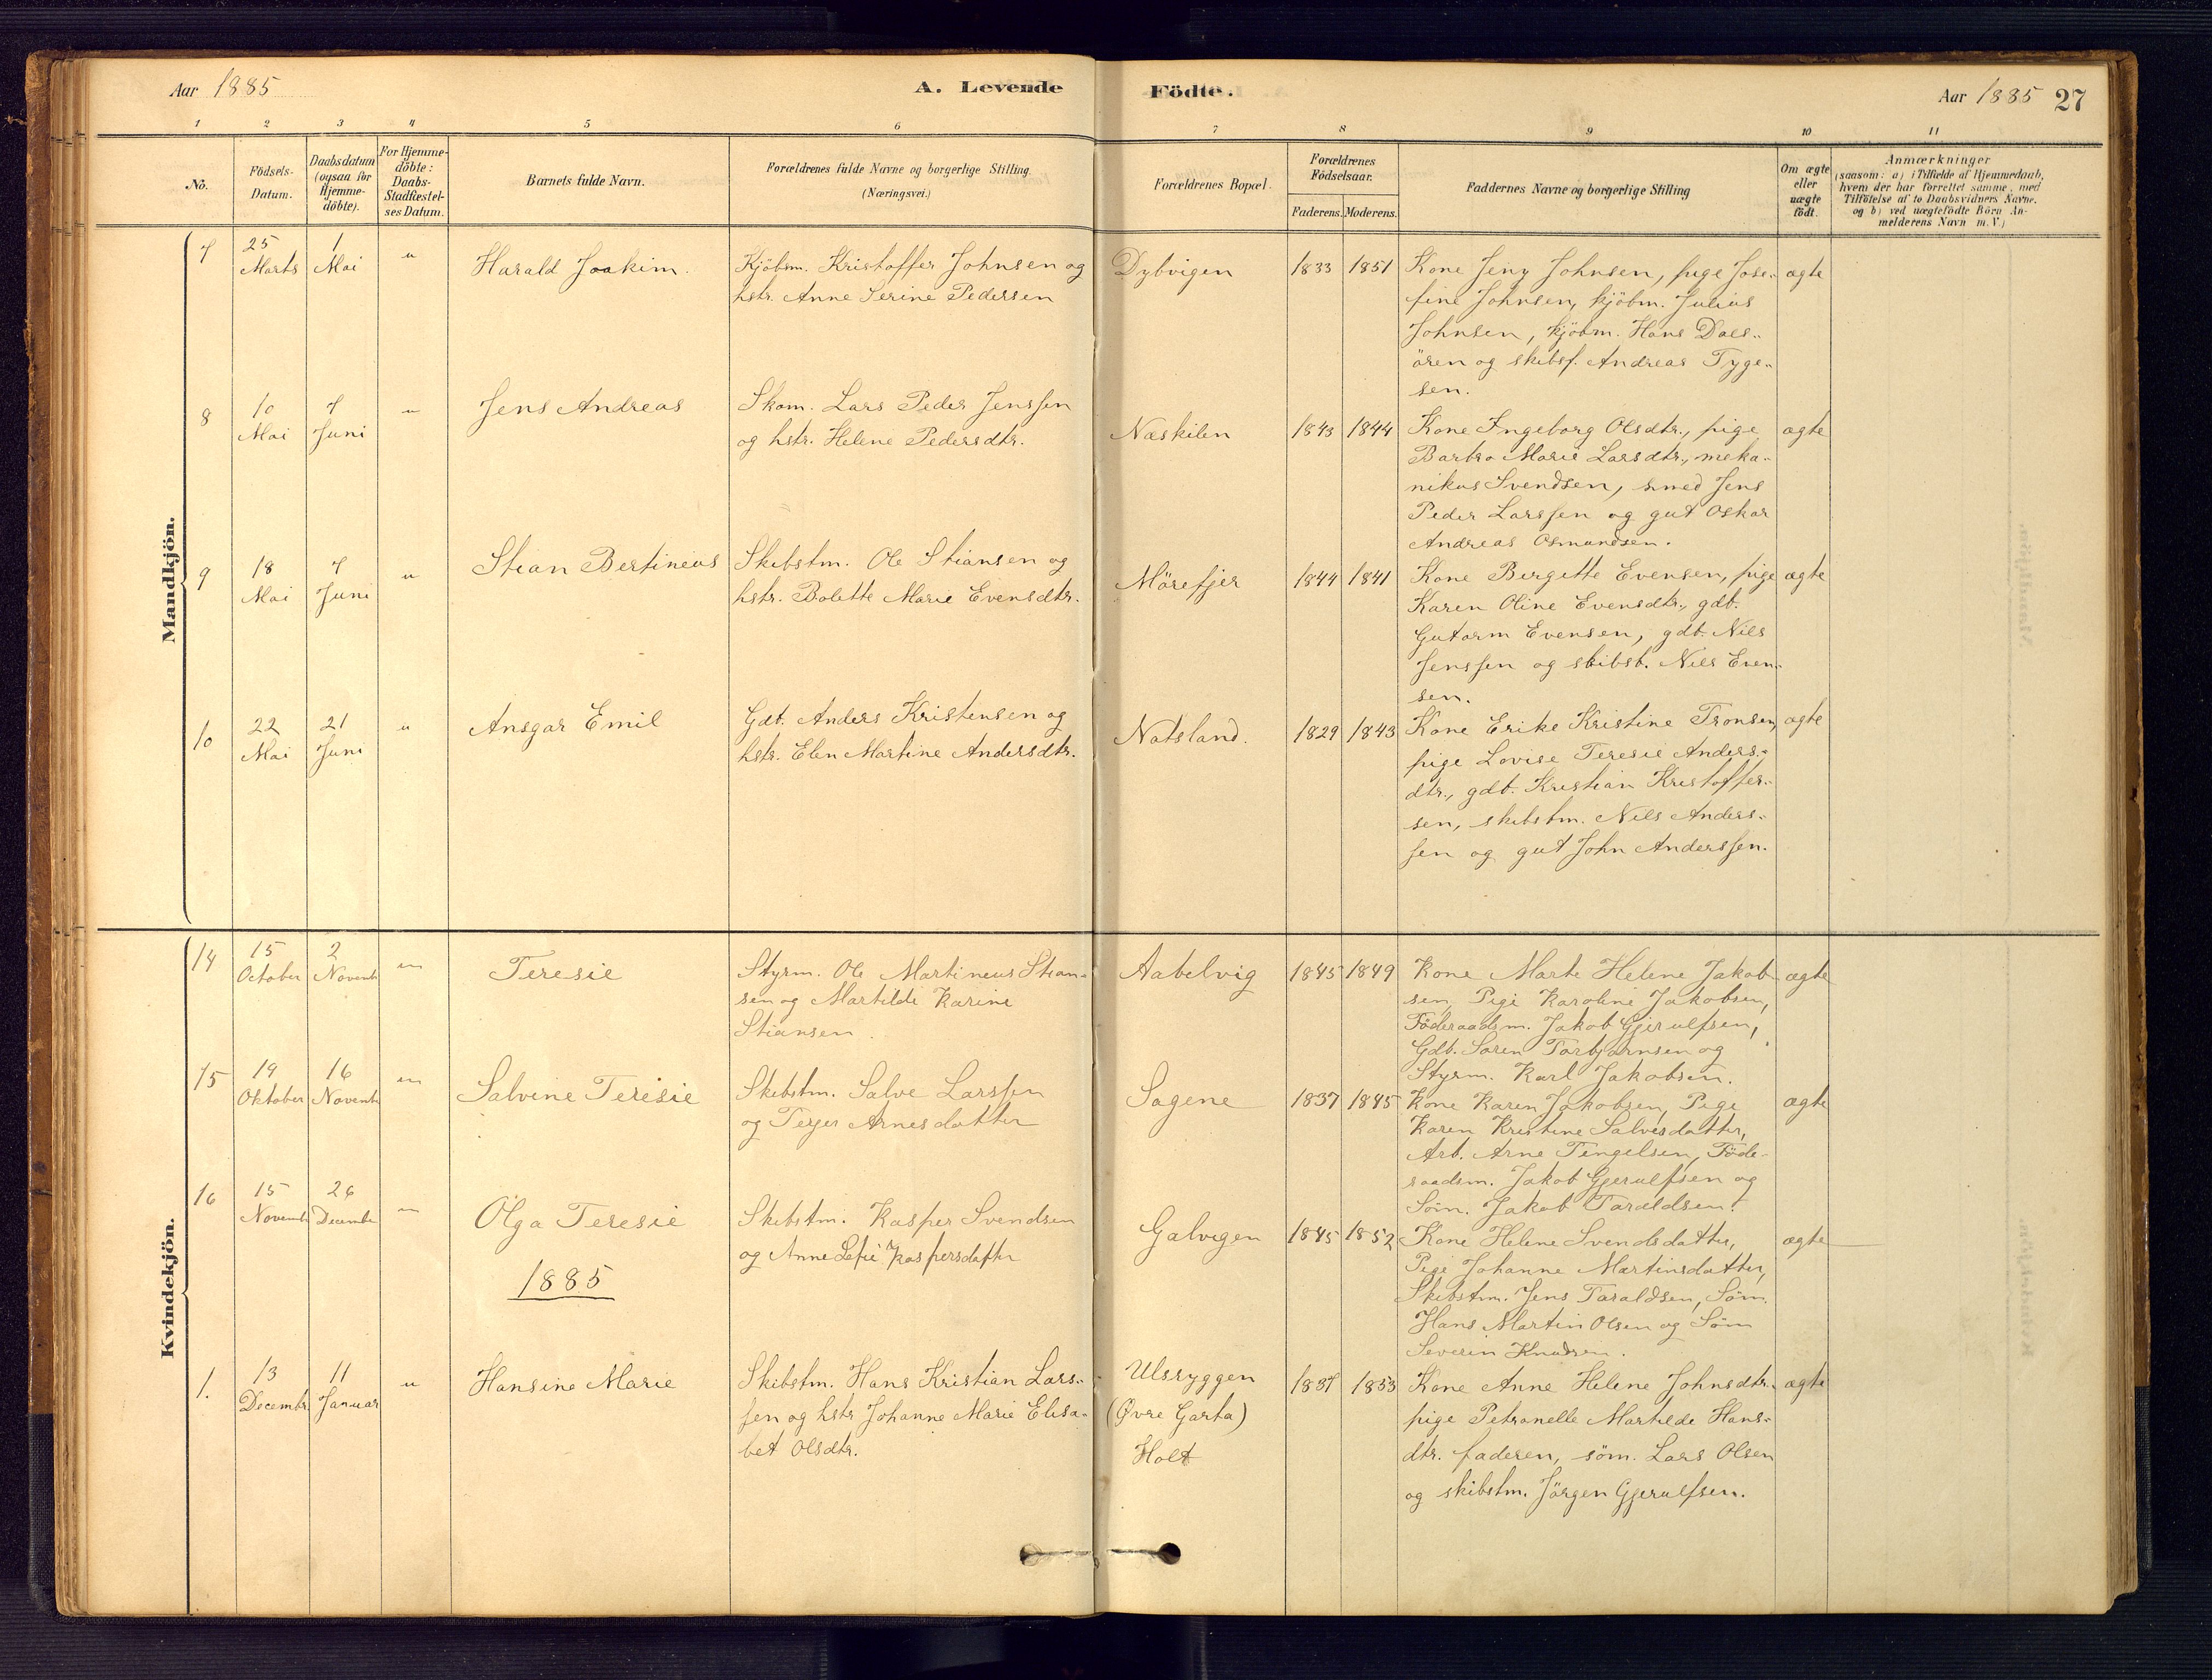 Aar 1885
A. Levende
Födte.
Aar 1885 27
1 2 3 4 5 6 7 8 9 10 11
No.
Födsels-Datum.
Daabsdatum (ogsaa for Hjemme-döbte).
For Hjemme-döbte: Daabs-Stadfæstel-ses Datum.
Barnets fulde Navn.
Forældrenes fulde Navne og borgerlige Stilling. (Næringsvei.)
Forældrenes Bopæl.
Forældrenes Födselsaar.
Faderens. Moderens.
Faddernes Navne og borgerlige Stilling
Om ægte eller uægte födt.
Anmærkninger
(saasom: a) i Tilfælde af Hjemmedaab,
hvem der har forrettet samme, med
Tilföielse af to Daabsvidners Navne.
og b) ved uægtefödte Börn An-
melderens Navn m.V.)
Mandkjön.
7 25 Marts 1 Mai " Harald Joakim.
Kjöbm. Kristoffer Johnsen og
hstr. Anne Serine Pedersen
Dybvigen 1833 1851
Kone Jeny Johnsen, pige Jose-
fine Johnsen, kjöbm. Julius
Johnsen, kjöbm. Hans Dals-
ören og skibsf. Andreas Tyge-
sen.
ægte
8 10 Mai 7 Juni " Jens Andreas
Skom. Lars Peder Jenssen
og hstr. Helene Pedersdtr.
Næskilen 1843 1844
Kone Ingeborg Olsdtr., pige
Barbro Marie Larsdtr., meka-
nikus Svendsen, smed Jens
Peder Larssen og gut Oskar
Andreas Osmundsen.
ægte
9 18 Mai 7 Juni " Stian Bertineus
Skibstm. Ole Stiansen og
hstr. Bolette Marie Evensdtr.
Mörefjer 1844 1841
Kone Birgette Evensen, pige
Karen Oline Evensdtr., gdb.
Gutorm Evensen, gdb. Nils
Jenssen og skibst. Nils Even-
sen.
ægte
10 22 Mai 21 Juni " Ansgar Emil
Gdb. Anders Kristensen og
hstr. Elen Martine Andersdtr.
Natsland. 1829 1843
Kone Erike Kristine Tronsen,
pige Lovise Teresie Anders-
dtr., gdb. Kristian Kristoffer-
sen, skibstm. Nils Anders-
sen og gut John Anderssen.
ægte
Kvindekjön.
14 15 October 2 Novemb " Teresie
Styrm. Ole Martineus Stian-
sen og Martilde Karine
Stiansen.
Aabelvig 1845 1849
Kone Marte Helene Jakob-
sen, Pige Karoline Jakobsen,
Föderaadsm. Jakob Gjerulfsen,
Gdb. Soren Torbjørnsen og
Styrm. Karl Jakobsen.
ægte
15 19 Oktober 16 Novemb " Salvine Teresie
Skibstm. Salve Larssen
og Terjer Arnesdatter
Sagene 1837 1845
Kone Karen Jakobsen, Pige
Karen Kristine Salvesdatter,
Arb. Arne Tengelsen, Föde-
raadsm. Jakob Gjerulfsen og
Söm. Jakob Taraldsen.
ægte
16 15 Novemb 26 Decembe " Olga Teresie
Skibstm. Kasper Svendsen
og Anne Kaspersdatter
Galvigen 1845 1852
Kone Helene Svendsdatter,
Pige Johanne Martinsdatter,
Skibstm. Jens Taraldsen, Söm.
Hans Martin Olsen og Söm
Severin Knudsen.
ægte
1885
1. 13 Decembr. 11 Januar " Hansine Marie
Skibstm. Hans Kristian Lars-
sen og hstr. Johanne Marie Elisa-
bet Olsdtr.
Ulsryggen
(Øvre Garta)
Holt
1837 1853
Kone Anne Helene Johnsdtr.,
pige Petronelle Martilde Hans-
dtr. faderen, söm. Lars Olsen
og skibstm. Jörgen Gjerulfsen.
ægte